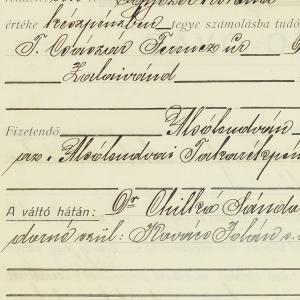 értéke készpénzben tegye számolásba tudó
T. Császár Ferencz úr
Zalaivánd
Fizetendő Alsólendván
az. Alsólendvai Takarékpén
A váltó hátán: Dr Chilkó Sándo
dorné szül: Kovács